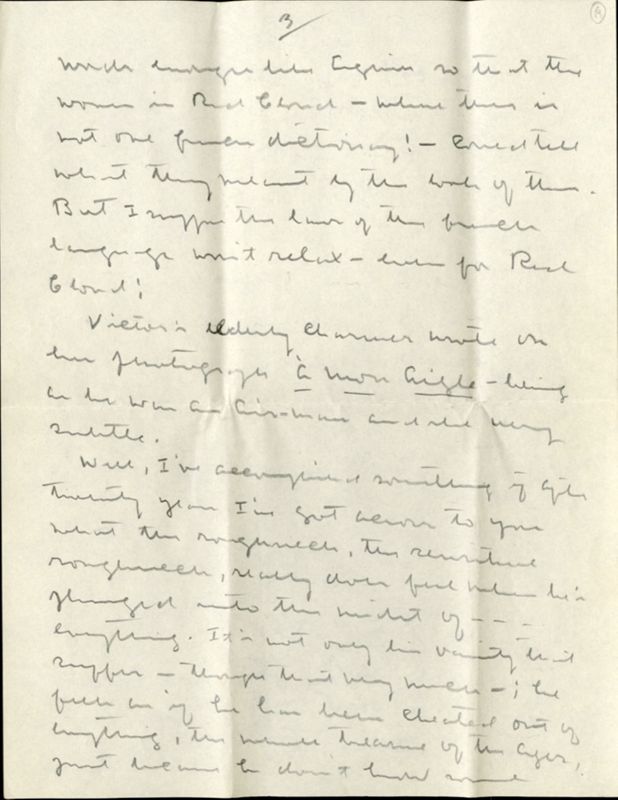 3
words enough like English so that the
women in Red Cloud - where there is
not one french dictionary! - could tell
what they meant by the look of them.
But I suppose the laws of the french
language won't relax - even for Red
Cloud!
Victor's elderly charmer wrote on
her photograph "à mon aigle - being
as he was an air-man and she very
subtle.
Well, I've accomplished something if after
twenty years I've got across to you
what the roughneck, the sensitive
roughneck, really does feel when he's
plunged into the midst of - - -
everything. It's not only his vanity that
suffers - though that very much - ; he
feels as if he has been cheated out of
everything, the whole treasure of the ages,
just because he don't know some